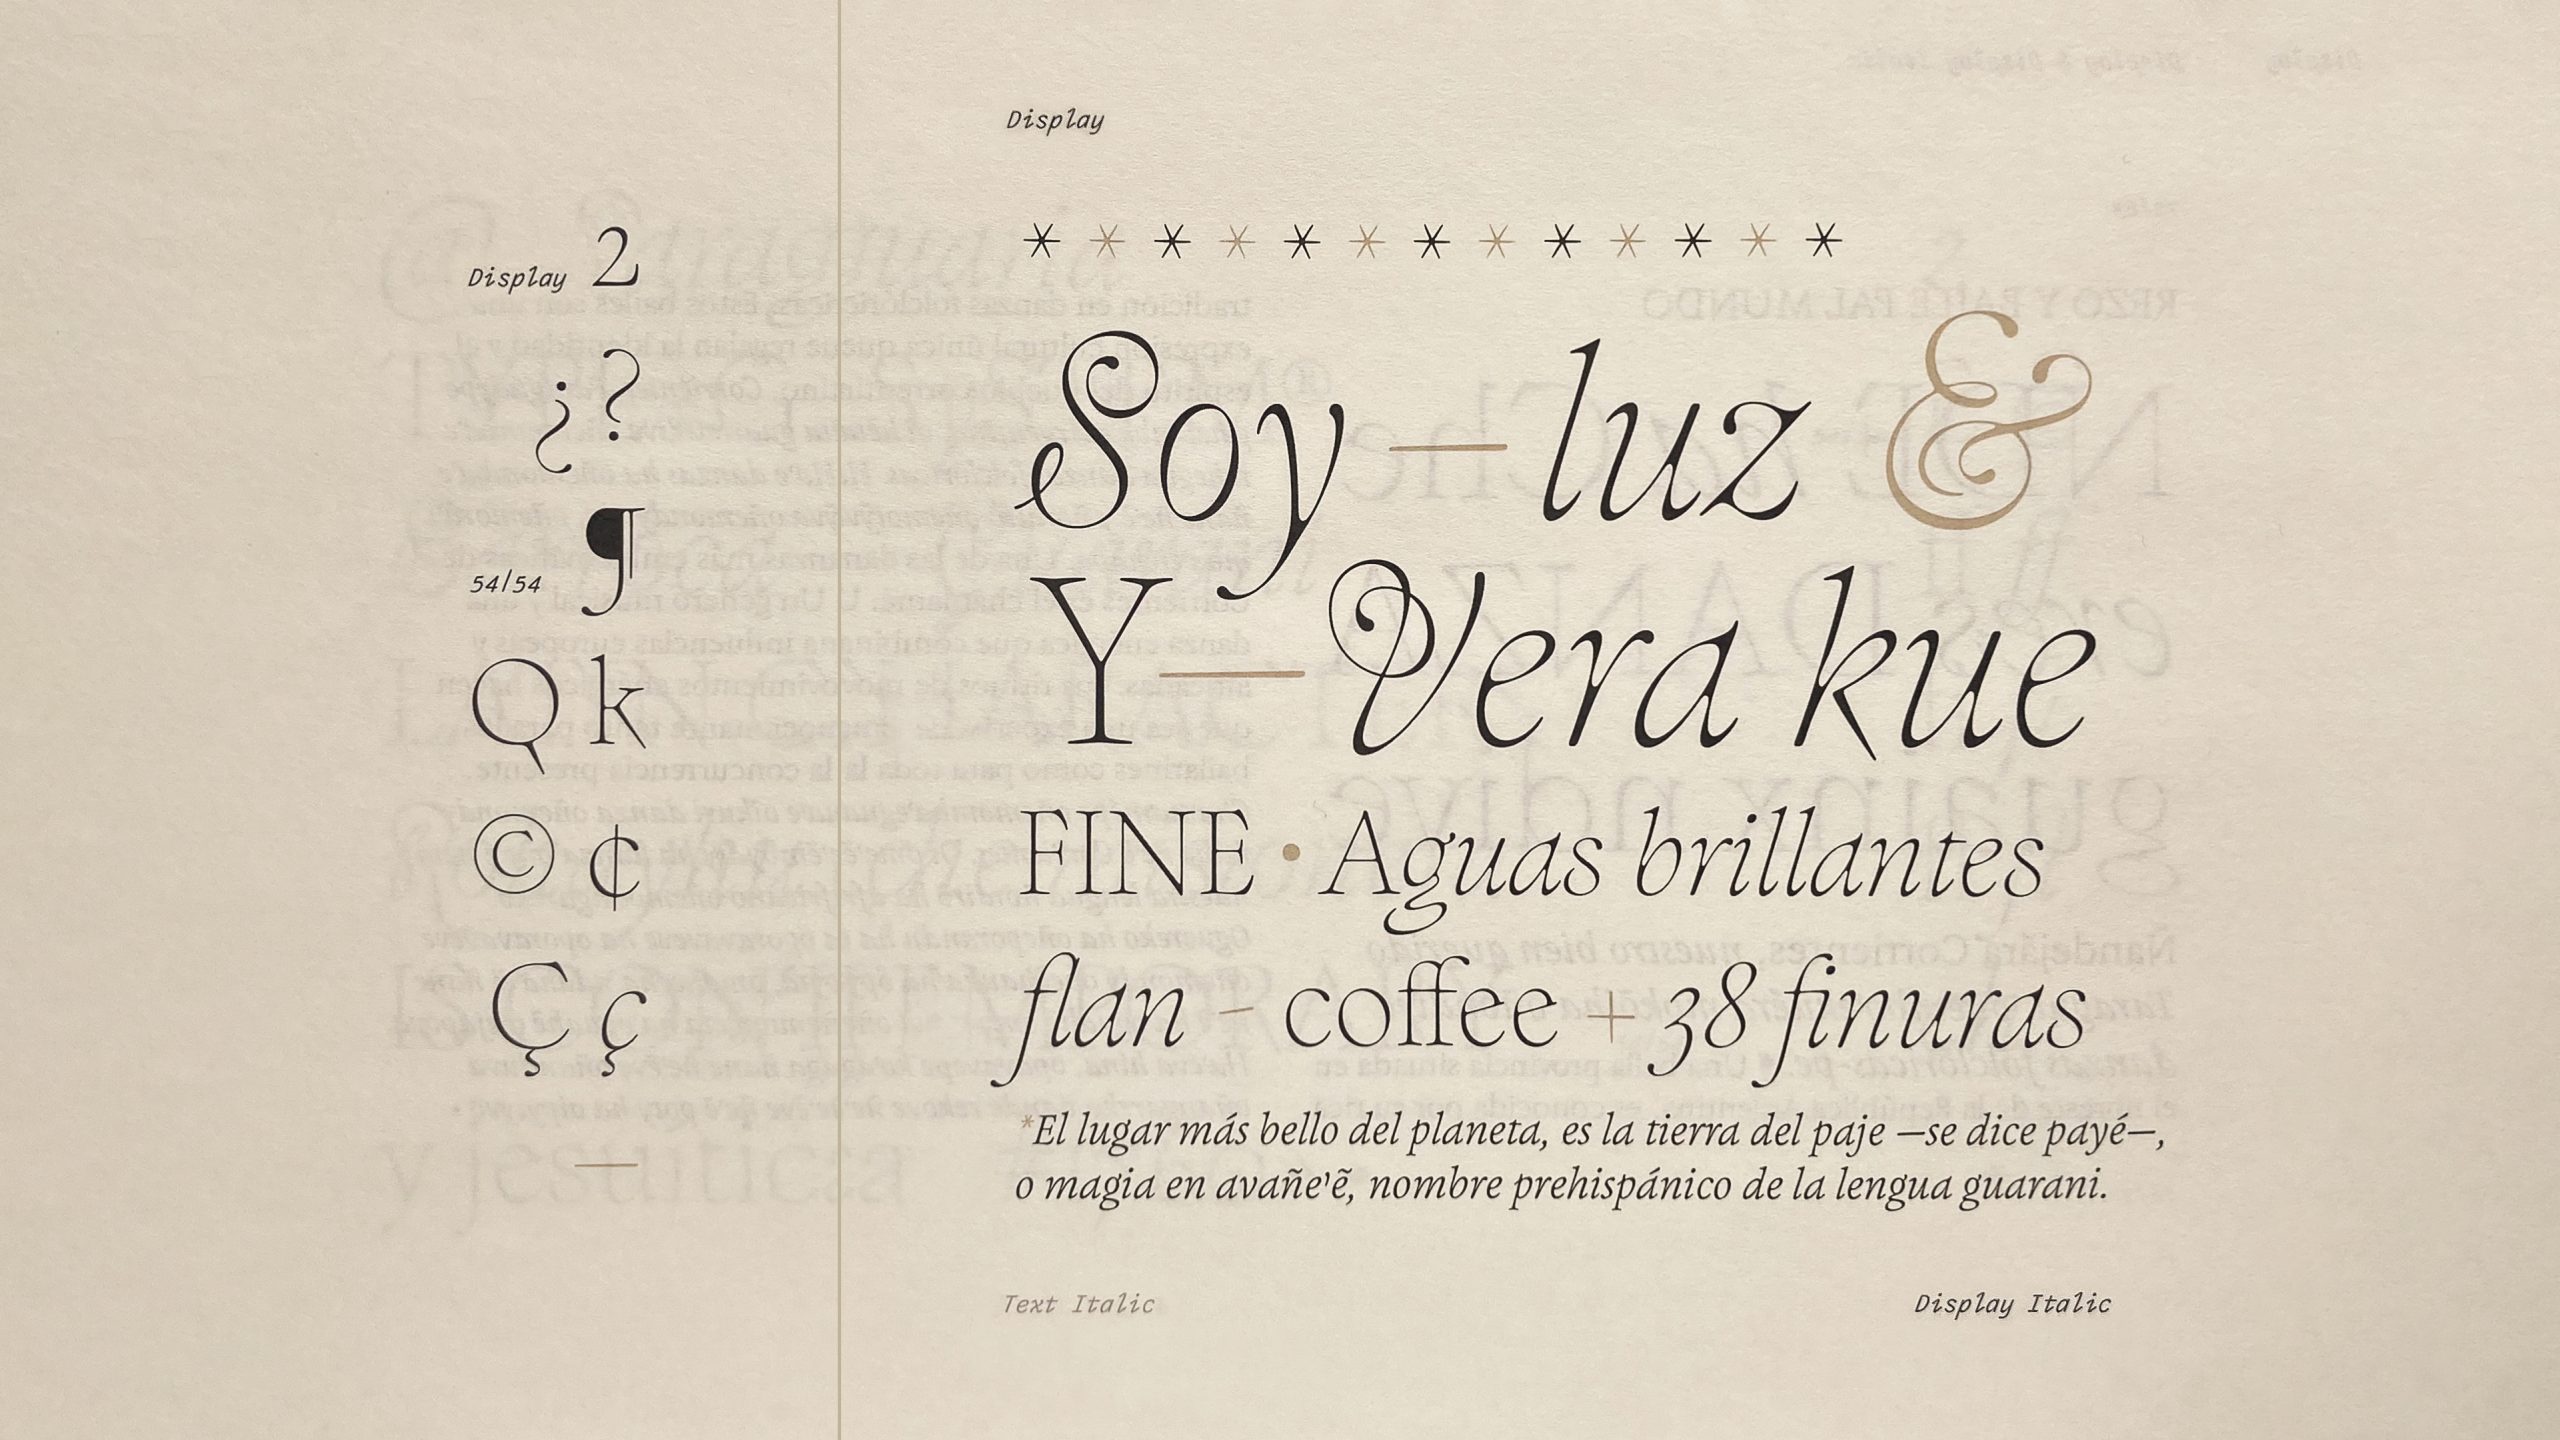 Display
2
¿?
¶
54/54
Q k
© ¢
Ç ç
—
Display
* * * * * * * * * * * * *
Soy—luz &
Y—Vera kue
FINE • Aguas brillantes
flan - coffee + 38 finuras
*El lugar más bello del planeta, es la tierra del paje —se dice payé—,
o magia en avañe'ẽ, nombre prehispánico de la lengua guarani.
Text Italic
Display Italic